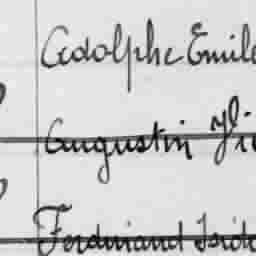 Adolphe Emile
Augustin
Ferdinand Isido